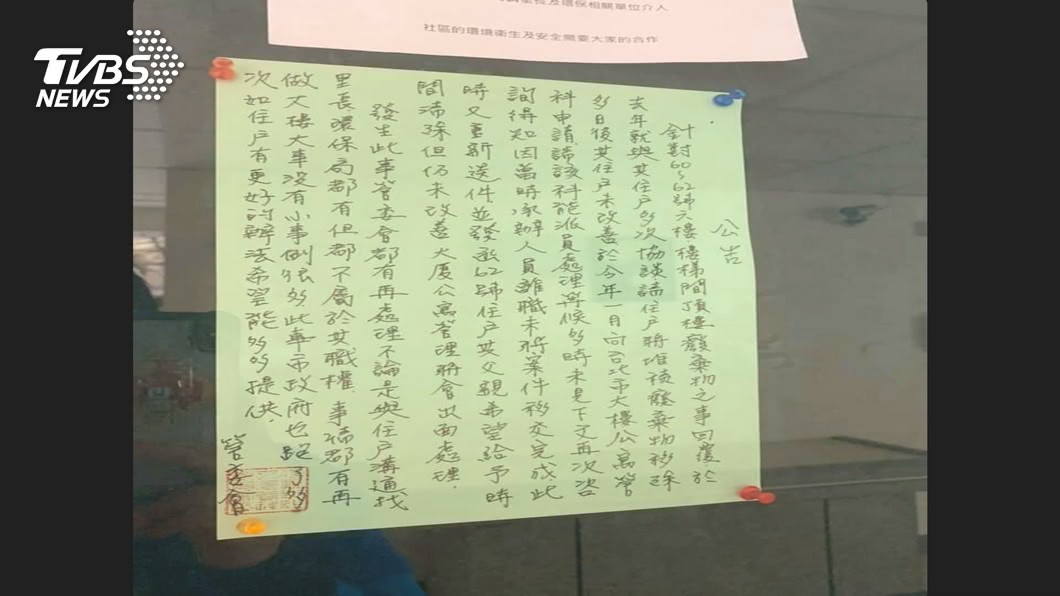 TVBS
NEWS
及環保相關單位介入
社區的環境衛生及安全需要大家的合作
公告
針對60~62號六樓樓梯間頂樓廢棄物之事回覆於
去年就與其住戶多次協談請住戶將堆積廢棄物移除
多日後其住戶未改善於今年一月向台北市大樓公寓管
科申請請該科能派員處理等候多時未見下文再次咨
詢得知因當時承辦人員離職未將案件移交完成此
時又重新送件並發函62號住戶其父親希望給予時
間清除但仍未改善大廈公寓管理將會出面處理.
發生此事管委會都有再處理不論是與住戶溝通找
里長環保局都有但都不屬於其職權.事備都有再
做大樓大事沒有小事倒很多.此事市政府也跑了多
次如住戶有更好的辦法希望能多多提供.
管委會